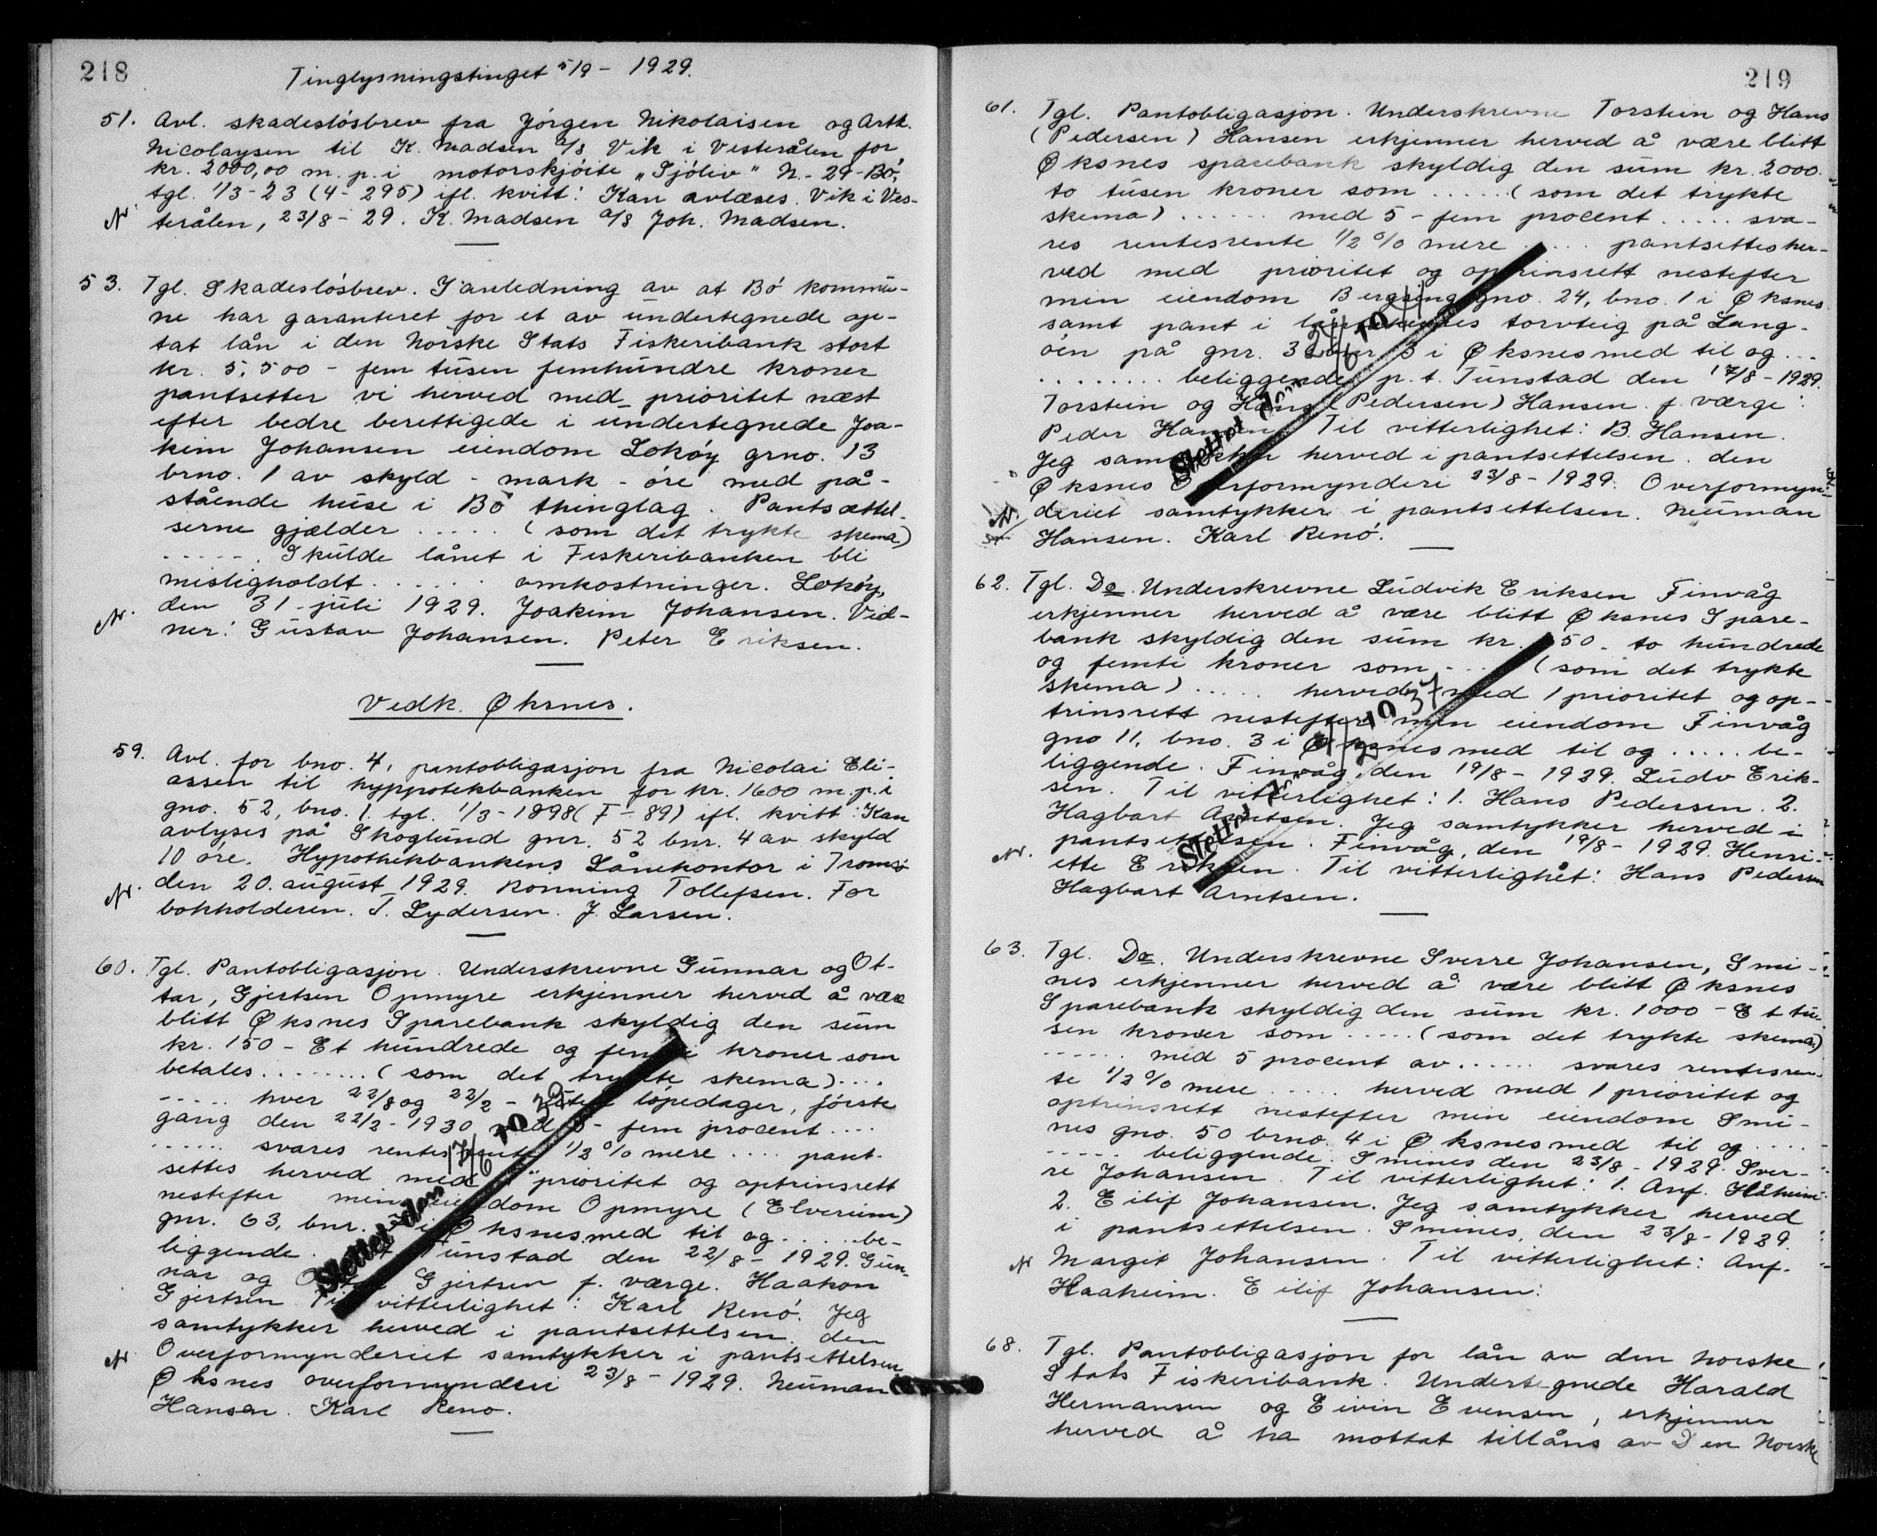 218
Tinglysningstinget 5/9 - 1929.
51. Avl. skadesløsbrev fra Jørgen Nikolaisen og Arth.
Nicolaysen til K. Madsen A/S Vik i Vesterålen for
kr. 2000,00 m. p. i motorskjøite „Sjøliv" N.-29-Bø,
tgl. 1/3-23 (4-295) ifl. kvitt: Kan avlæses. Vik i Ves-
N terålen, 23/8-29. K. Madsen A/S Joh. Madsen.
53. Tgl. Skadesløsbrev. I anledning av at Bø kommu-
ne har garanteret for et av undertegnede op-
tat lån i den Norske Stats Fiskeribank stort
kr. 5,500 - fem tusen femhundre kroner
pantsetter vi herved med prioritet næst
efter bedre berettigede i undertegnede Joa-
kim Johansen eiendom Lokøy grno. 13
brno. 1 av skyld - mark - øre med på-
stående huse i Bø thinglag. Pantsættel-
serne gjælder ..... (som det trykte skema)
..... Skulde lånet i Fiskeribanken bli
misligholdt ...... omkostninger. Lokøy,
den 31-juli 1929. Joakim Johansen. Vid-
N. ner: Gustav Johansen. Peter Eriksen.
Vedk. Øksnes.
59. Avl. for bno. 4, pantobligasjon fra Nicolai Eli-
assen til hyppotekbanken for kr. 1600 m. p. i
gno. 52, bno. 1. tgl. 1/3-1898 (F-89) ifl. kvitt: Kan
avlyses på Skoglund gnr. 52 bnr. 4 av skyld
10 øre. Hypothekbankens Lånekontor i Tromsø
N. den 20. august 1929. Ronning Tollefsen. For
bokholderen. T. Lydersen. J. Larsen.
60. Tgl. Pantobligasjon. Underskrevne Gunnar og Ot-
tar, Gjertsen Opmyre erkjenner herved å være
blitt Øksnes Sparebank skyldig den sum
kr. 150 - Et hundrede og femti kroner som
betales ........ (som det trykte skema) ....
..... hver 22/8 og 22/2 - løpedager, første
gang den 22/2-1930 med 5 - fem procent ....
...... svares rentesrente 1/2 % mere .... pant-
settes herved med prioritet og optrinsrett
nestefter min eiendom Opmyre (Elverum)
gnr. 63, bnr. i Øksnes med til og ..... be-
liggende. Tunstad den 22/8-1929. Gun-
nar og Gjertsen f. værge. Haakon
Gjertsen. Til vitterlighet: Karl Renø. Jeg
samtykker herved i pantsettelsen. den
N. Overformynderiet samtykker i pantsettelsen
Øksnes overformynderi 23/8-1929. Neuman
Hansen. Karl Reno.
Slettet den 17/6 1939
219
61. Tgl. Pantobligasjon. Underskrevne Torstein og Hans
(Pedersen) Hansen erkjenner herved å være blitt
Øksnes sparebank skyldig den sum kr. 2000.
to tusen kroner som ..... (som det trykte
skema) ...... med 5 - fem procent ..... sva-
res rentesrente 1/2 % mere ..... pantsettes her-
ved med prioritet og optrinsrett nestefter
min eiendom gno. 24, bno. 1 i Øksnes
samt pant i torvteig på Lang-
øen på gnr. 3 i Øksnes med til og ...
........ beliggende p.t. Tunstad den 17/8-1929.
Torstein og Hans (Pedersen) Hansen f. værge:
Peder Hansen. Til vitterlighet: B. Hansen.
Jeg samtykker herved i pantsettelsen. den
Øksnes Overformynderi 23/8-1929. Overformyn-
N. deriet samtykker i pantsettelsen. Neuman
Hansen. Karl Renø.
Slettet den
62. Tgl. Do. Underskrevne Ludvik Eriksen Finvåg
erkjenner herved å være blitt Øksnes Spare-
bank skyldig den sum kr. 250 - to hundrede
og femti kroner som .... (som det trykte
skema) ..... herved med 1 prioritet og op-
trinsrett nestefter min eiendom Finvåg
gno 11, bno. 3 i Øksnes med til og ..... be-
liggende. Finvåg, den 19/8-1929. Ludv Erik-
sen. Til vitterlighet: 1. Hans Pedersen. 2.
Hagbart Arntsen. Jeg samtykker herved i
N. pantsettelsen. Finvåg, den 19/8-1929. Henri-
ette Eriksen. Til vitterlighet: Hans Pedersen
Hagbart Arntsen.
Slettet
63. Tgl. Do. Underskrevne Sverre Johansen, Smi-
nes erkjenner herved å være blitt Øksnes
Sparebank skyldig den sum kr. 1000 - Et tu-
sen kroner som ..... (som det trykte skema)
...... med 5 procent av ...... svares rentesren-
te 1/2 % mere ..... herved med 1 prioritet og
optrinsrett nestefter min eiendom Smi-
nes gno. 50 brno. 4 i Øksnes med til og ....
..... beliggende. Smines den 23/8-1929. Sver-
re Johansen. Til vitterlighet: 1. Anf. Håheim
2. Eilif Johansen. Jeg samtykker herved
i pantsettelsen. Smines, den 23/8-1929.
N Margit Johansen. Til vitterlighet: Anf.
Haaheim. Eilif Johansen.
68. Tgl. Pantobligasjon for lån av den Norske
Stats Fiskeribank. Undertegnede Harald
Hermansen og Eivin Evensen, erkjenner
herved å ha mottat tillåns av Den Norske